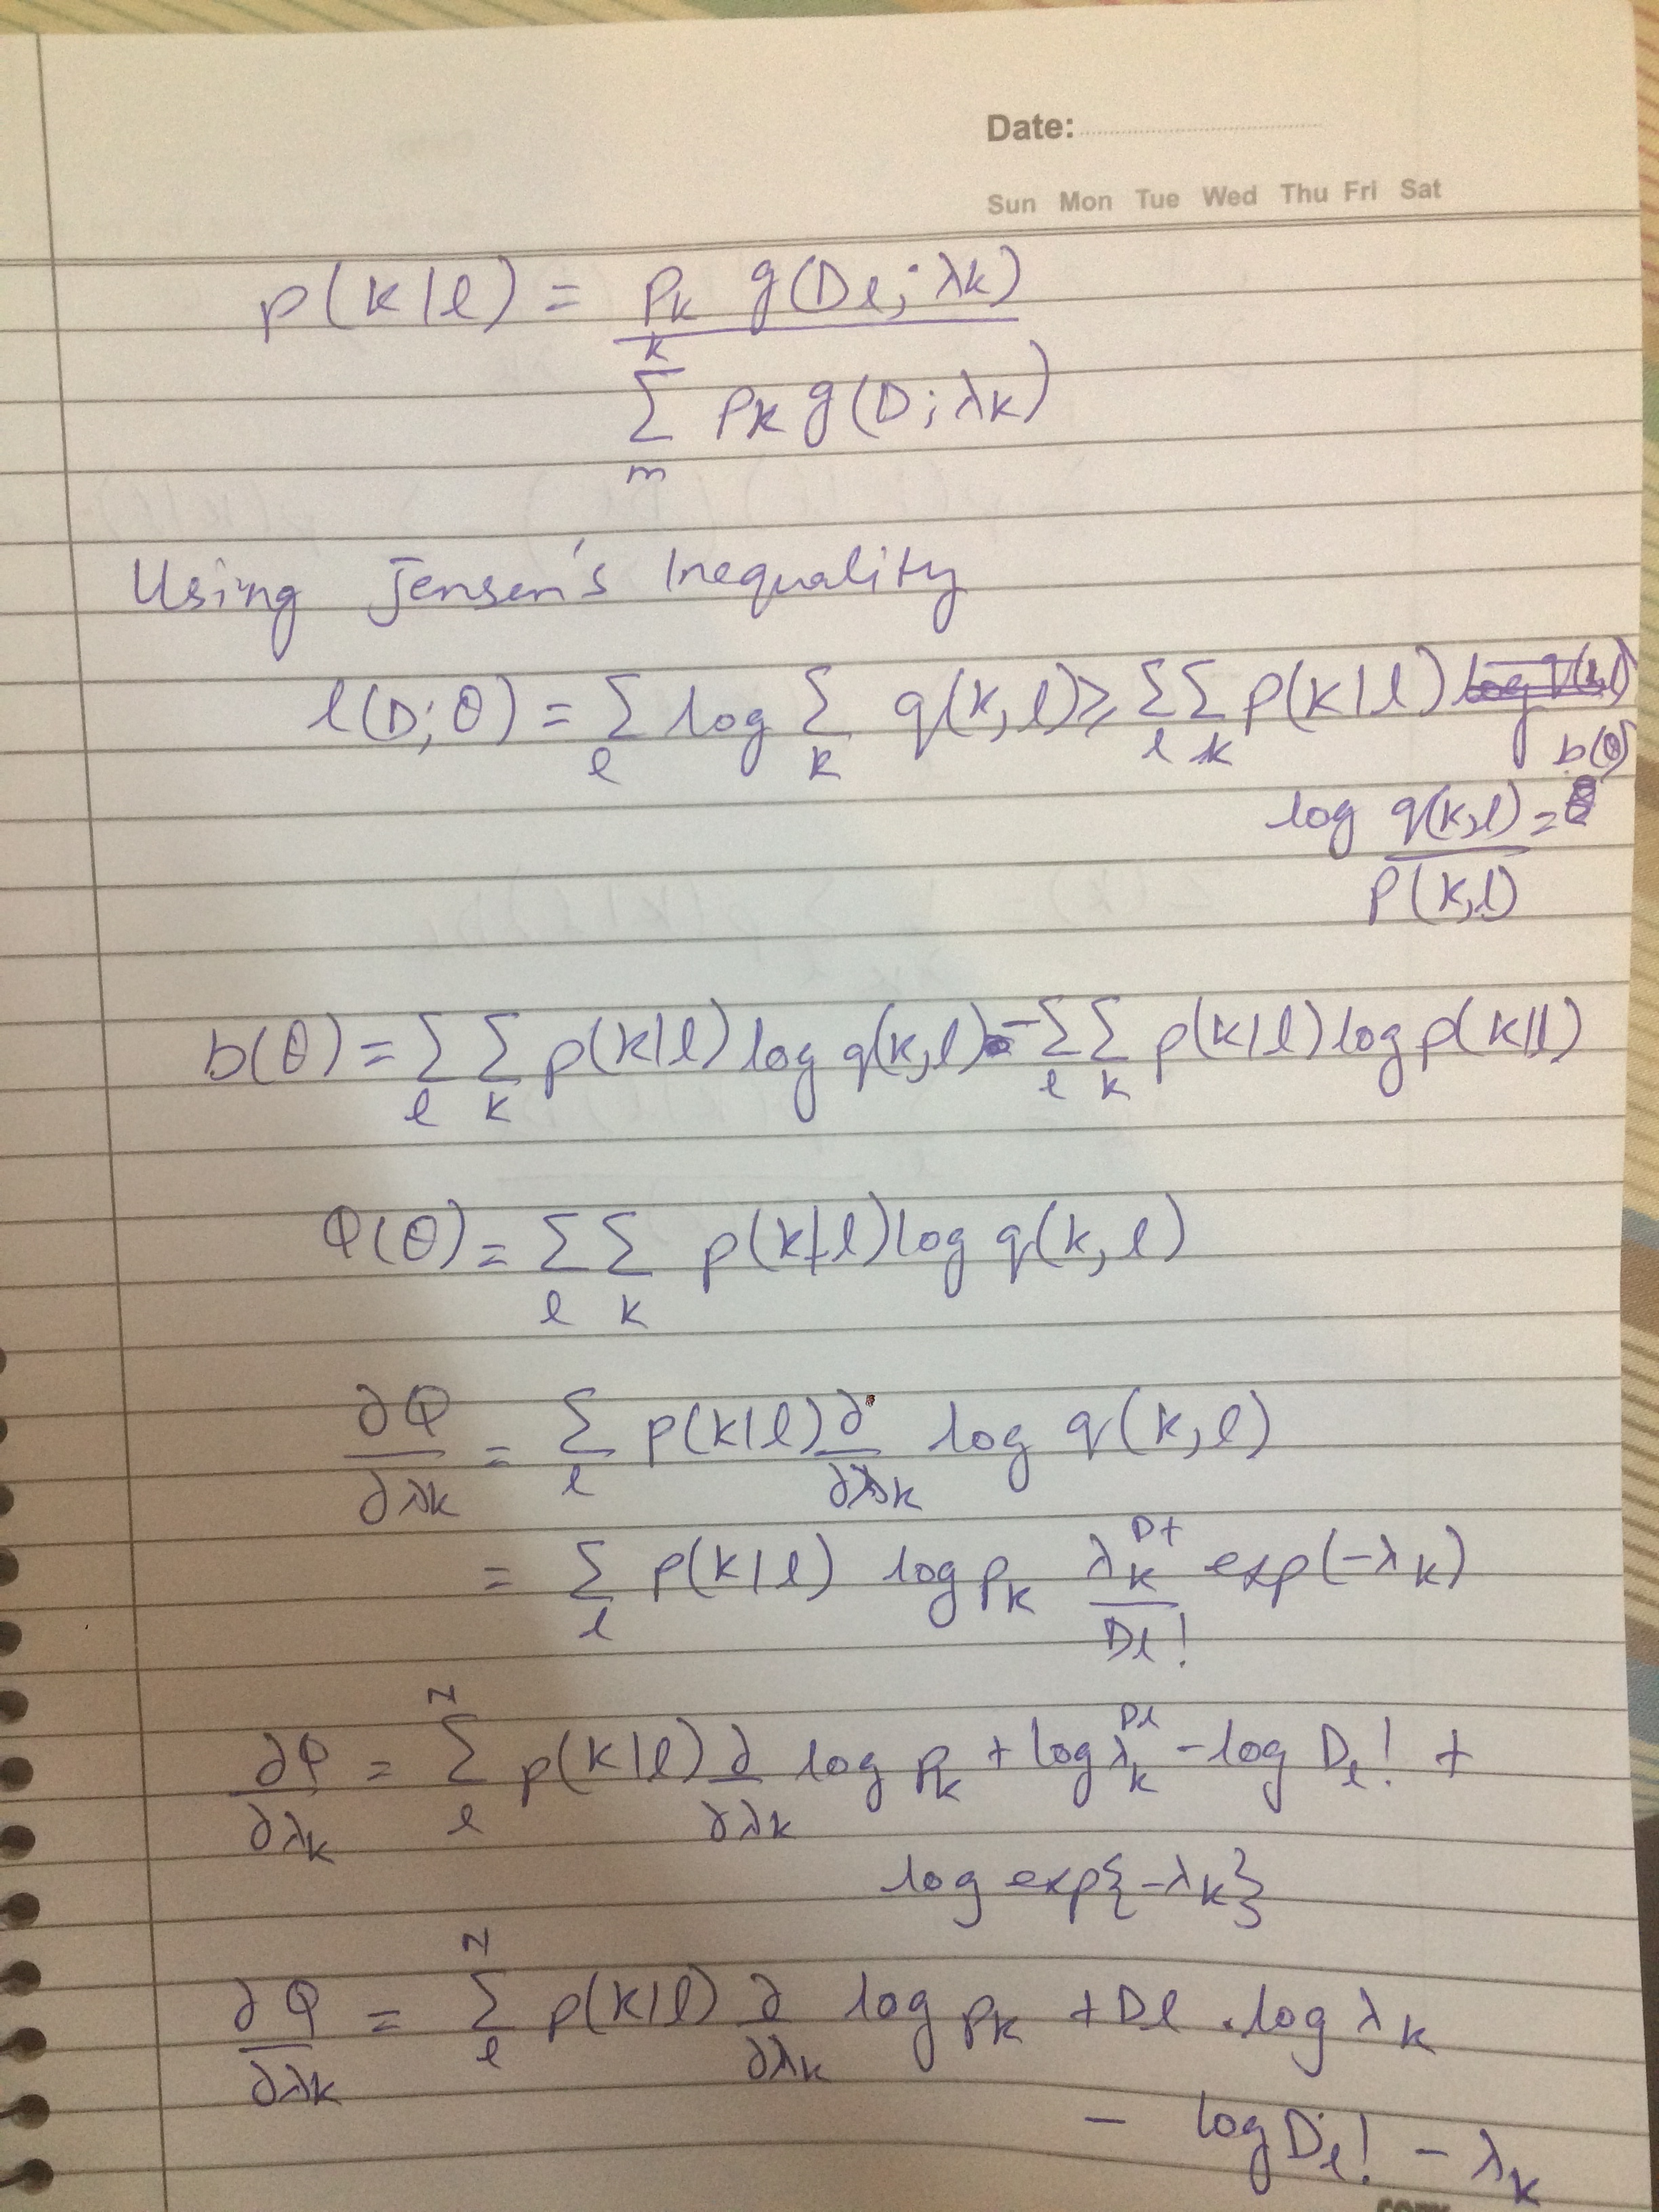 Date:
Sun Mon Tue Wed Thu Fri Sat
p(k|l) = p_k g(D_l; λ_k)
k
Σ p_k g(D; λ_k)
m
Using Jensen's Inequality
l(D; θ) = Σ_l log Σ_k q(k,l) ≥ Σ_l Σ_k p(k|l)
b(θ)
log q(k,l) =
P(k,l)
b(θ) = Σ_l Σ_k p(k|l) log q(k,l) - Σ_l Σ_k p(k|l) log p(k|l)
Q(θ) = Σ_l Σ_k p(k|l) log q(k, l)
∂Q/∂λ_k = Σ_l p(k|l) ∂/∂λ_k log q(k, l)
= Σ_l p(k|l) log p_k λ_k^Dt/D_l! exp(-λ_k)
∂Q/∂λ_k = Σ_l^N p(k|l) ∂/∂λ_k log p_k + log λ_k^D_l - log D_l! +
log exp{-λ_k}
∂Q/∂λ_k = Σ_l^N p(k|l) ∂/∂λ_k log p_k + D_l . log λ_k
- log D_l! - λ_k